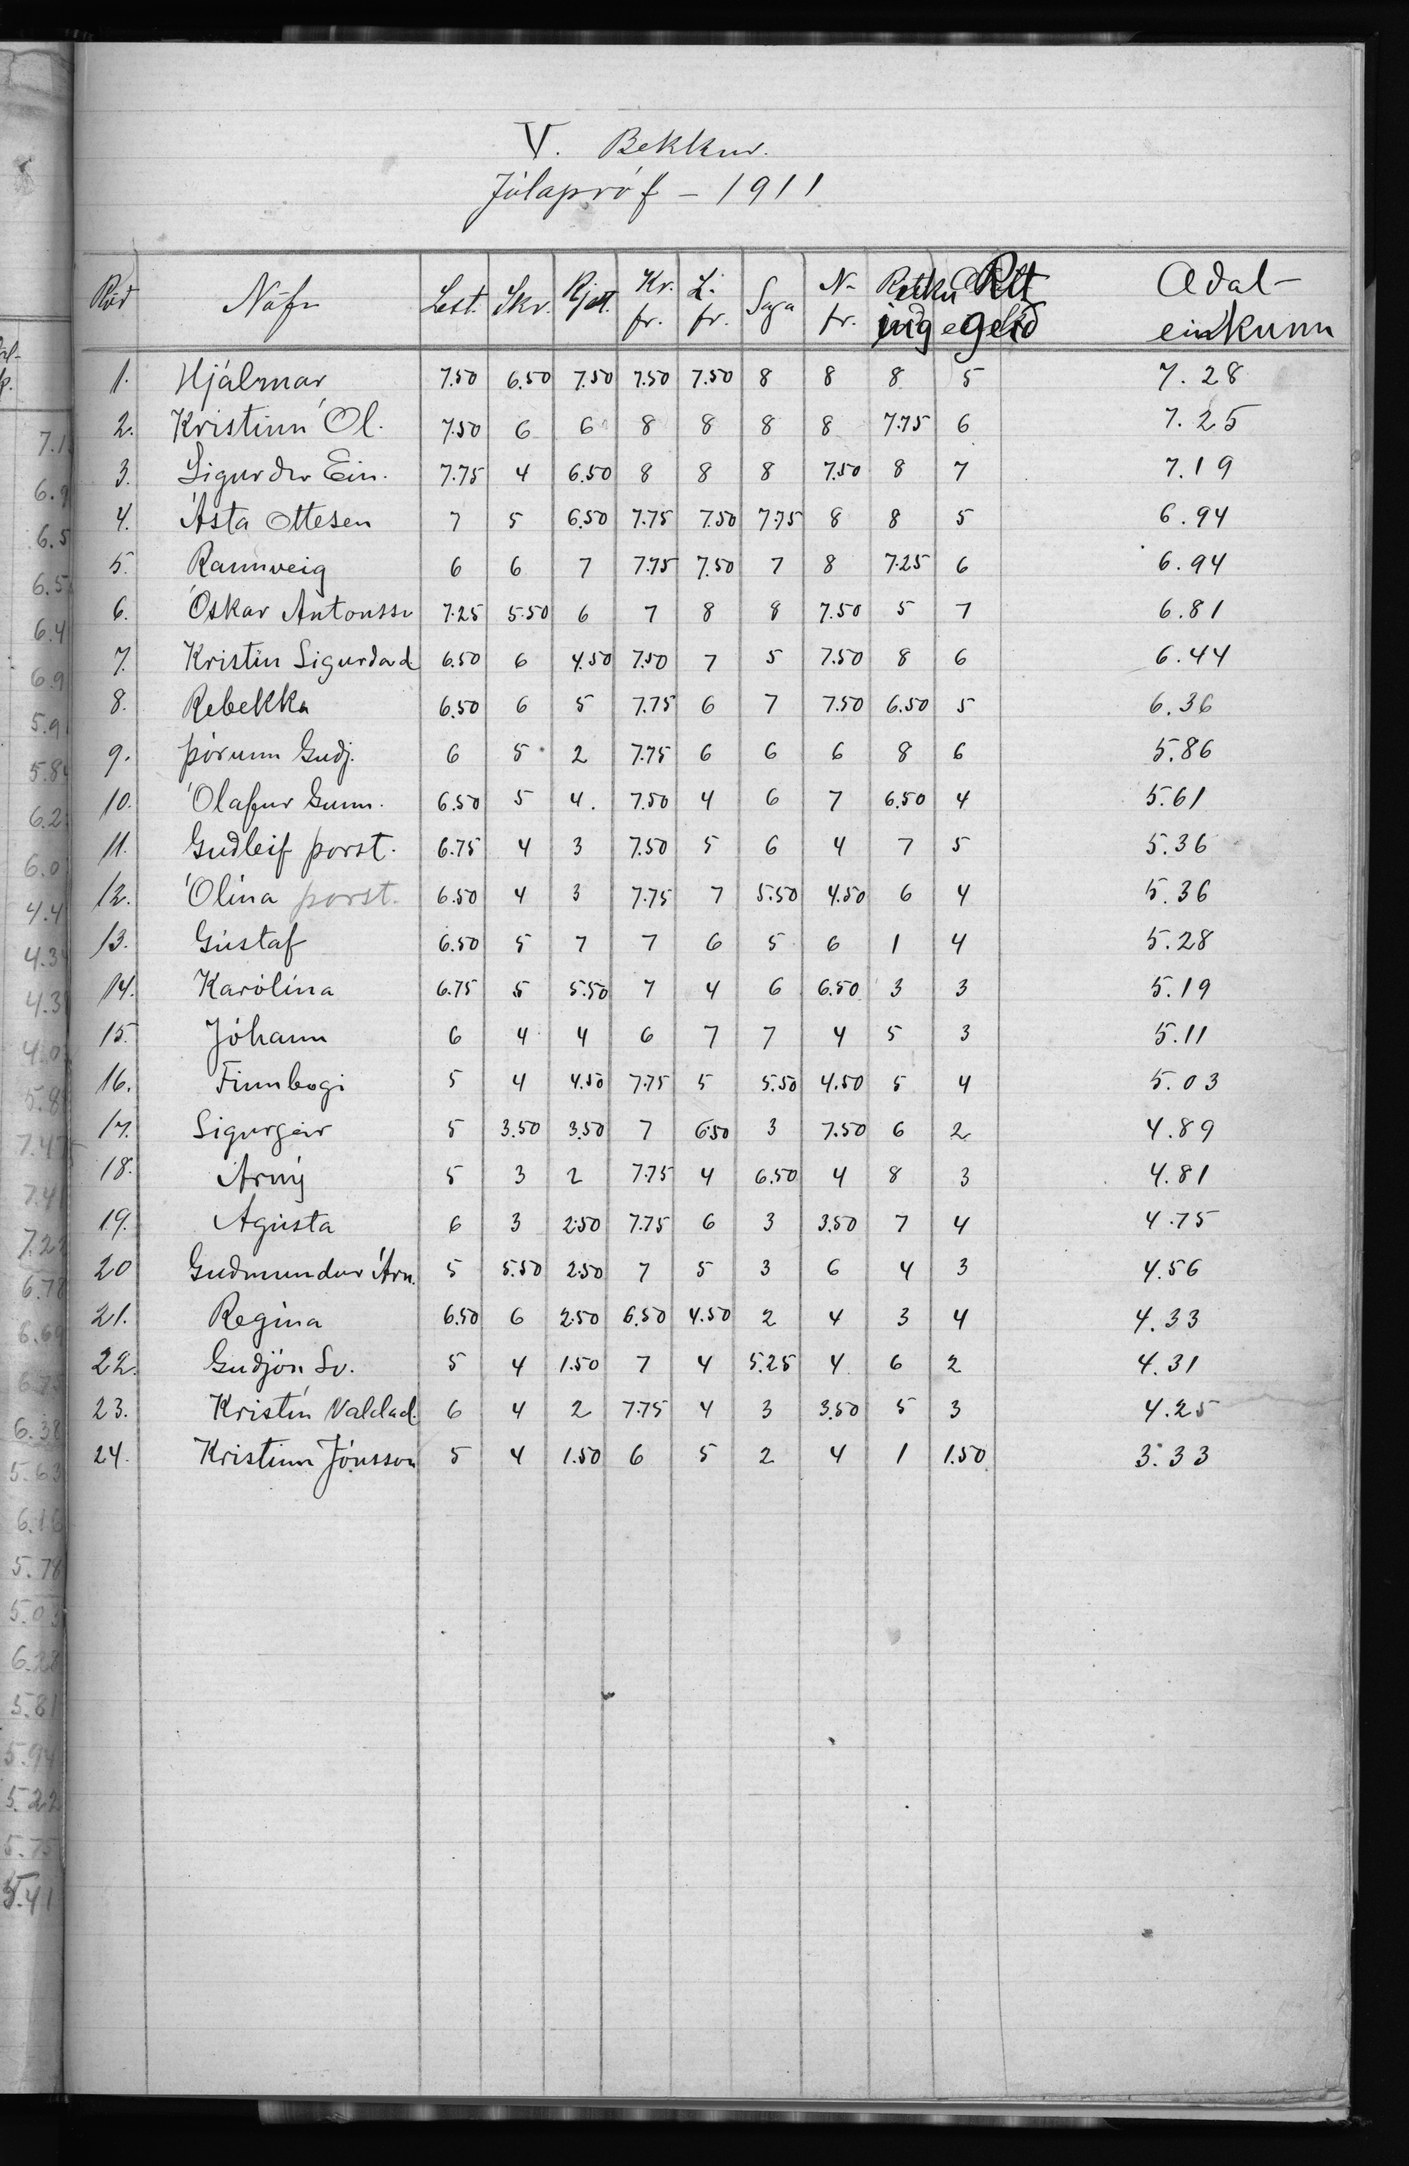 V. Bekkur.
Jólapróf – 1911
Röð Nöfn Lest. Skr. Rjett. Kr. fr. L. fr. Saga N- fr. Aðal- einkunn
1. Hjálmar 7.50 6.50 7.50 7.50 7.50 8 8 8 5 7.28
2. Kristinn Ól. 7.50 6 6 8 8 8 8 7.75 6 7.25
3. Sigurður Ein. 7.75 4 6.50 8 8 8 7.50 8 7 7.19
4. Ásta Ottesen 7 5 6.50 7.75 7.50 7.75 8 8 5 6.94
5. Rannveig 6 6 7 7.75 7.50 7 8 7.25 6 6.94
6. Óskar Antonsso 7.25 5.50 6 7 8 8 7.50 5 7 6.81
7. Kristín Sigurðard. 6.50 6 4.50 7.50 7 5 7.50 8 6 6.44
8. Rebekka 6.50 6 5 7.75 6 7 7.50 6.50 5 6.36
9. Þórunn Guðj. 6 5 2 7.75 6 6 6 8 6 5.86
10. Ólafur Gunn. 6.50 5 4. 7.50 4 6 7 6.50 4 5.61
11. Guðleif Þorst. 6.75 4 3 7.50 5 6 4 7 5 5.36
12. Ólína Þorst. 6.50 4 3 7.75 7 5.50 4.50 6 4 5.36
13. Gústaf 6.50 5 7 7 6 5 6 1 4 5.28
14. Karólína 6.75 5 5.50 7 4 6 6.50 3 3 5.19
15. Jóhann 6 4 4 6 7 7 4 5 3 5.11
16. Finnbogi 5 4 4.50 7.75 5 5.50 4.50 5 4 5.03
17. Sigurgeir 5 3.50 3.50 7 6.50 3 7.50 6 2 4.89
18. Árný 5 3 2 7.75 4 6.50 4 8 3 4.81
19. Agústa 6 3 2.50 7.75 6 3 3.50 7 4 4.75
20 Guðmundur Árn. 5 5.50 2.50 7 5 3 6 4 3 4.56
21. Regína 6.50 6 2.50 6.50 4.50 2 4 3 4 4.33
22. Guðjón Sv. 5 4 1.50 7 4 5.25 4 6 2 4.31
23. Kristín Valdad. 6 4 2 7.75 4 3 3.50 5 3 4.25
24. Kristinn Jónsson 5 4 1.50 6 5 2 4 1 1.50 3.33